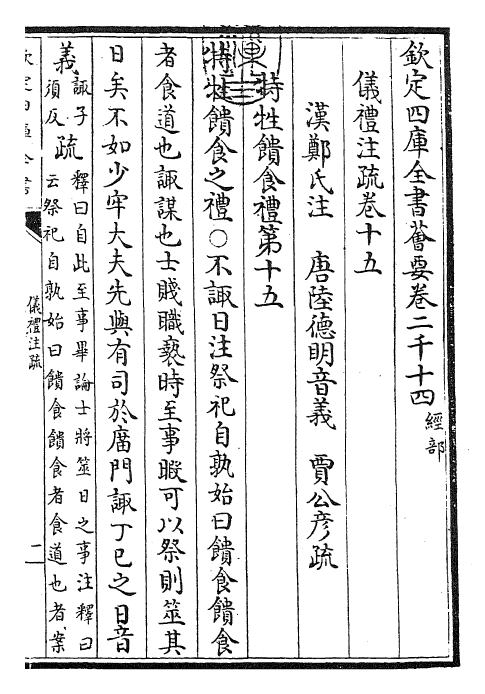 欽定四庫全書薈要卷二千十四 經部
儀禮注疏卷十五
漢鄭氏注 唐陸德明音義 賈公彥疏
特牲饋食禮第十五
特牲饋食之禮○不諏日注祭祀自孰始曰饋食饋食
者食道也諏謀也士賤職褻時至事暇可以祭則筮其
日矣不如少牢大夫先與有司於廟門諏丁巳之日音
義諏子須反疏釋曰自此至事畢論士將筮日之事注釋曰云祭祀自孰始曰饋食饋食者食道也者案
儀禮注疏